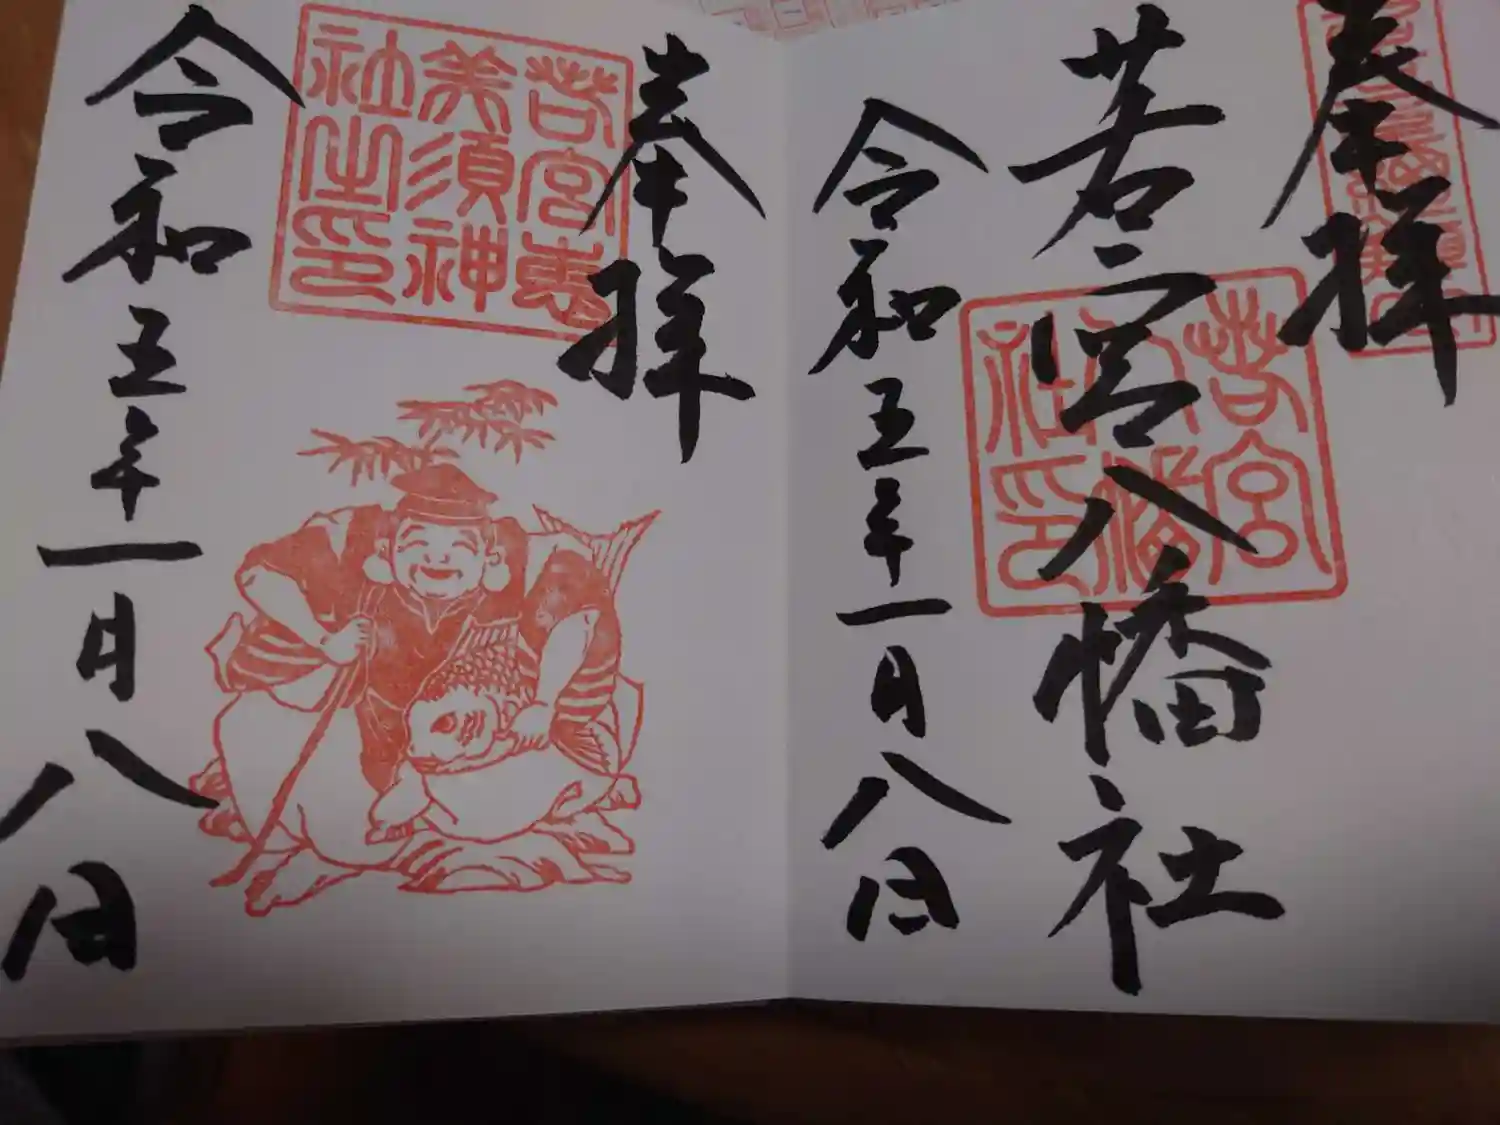 奉拝
若宮八幡社
若宮
八幡
社印
令和五年一月八日
奉拝
若宮恵
美須神
社之印
令和五年一月八日